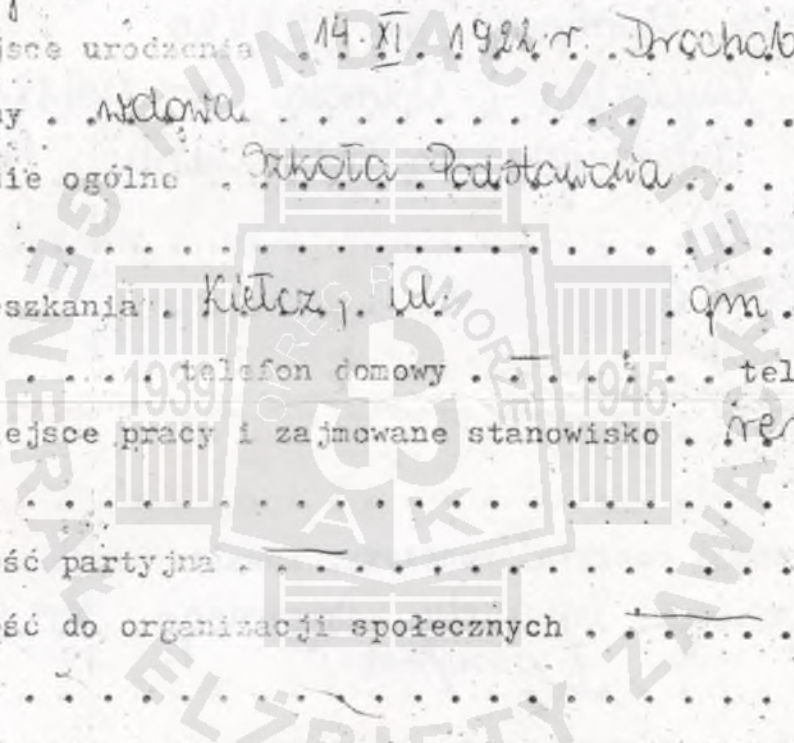 jsce urodzenia . 14.XI.1922 r. Drohob
y . wdowa . . . . . . . . . . . . . .
ie ogólne . Szkoła Podstawowa . . .
szkania . Kiełcz, ul. . gm .
. . . . telefon domowy . — . . . tel
ejsce pracy i zajmowane stanowisko . ren
ść partyjna . — . . . . . . . . . .
ść do organizacji społecznych . . — . .
FUNDACJA GENERAŁ ELŻBIETY ZAWACKIEJ
OKRĘG POMORZE
1939 1945
AK